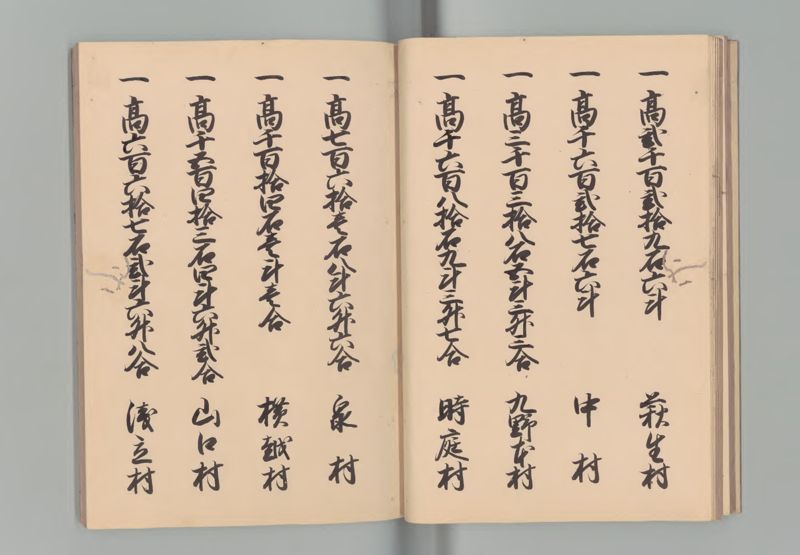 一高弐千百弐拾九石六斗　萩生村
一高千六百弐拾七石六斗　中村
一高三千百三拾八石五斗三升二合　九野本村
一高千六百八拾石九斗三升七合　時庭村
一高七百六拾壱石八斗六升六合　泉村
一高千百拾四石壱斗壱合　横越村
一高千五百四拾三石四斗六升弐合　山口村
一高六百六拾七石弐斗六升八合　浅立村